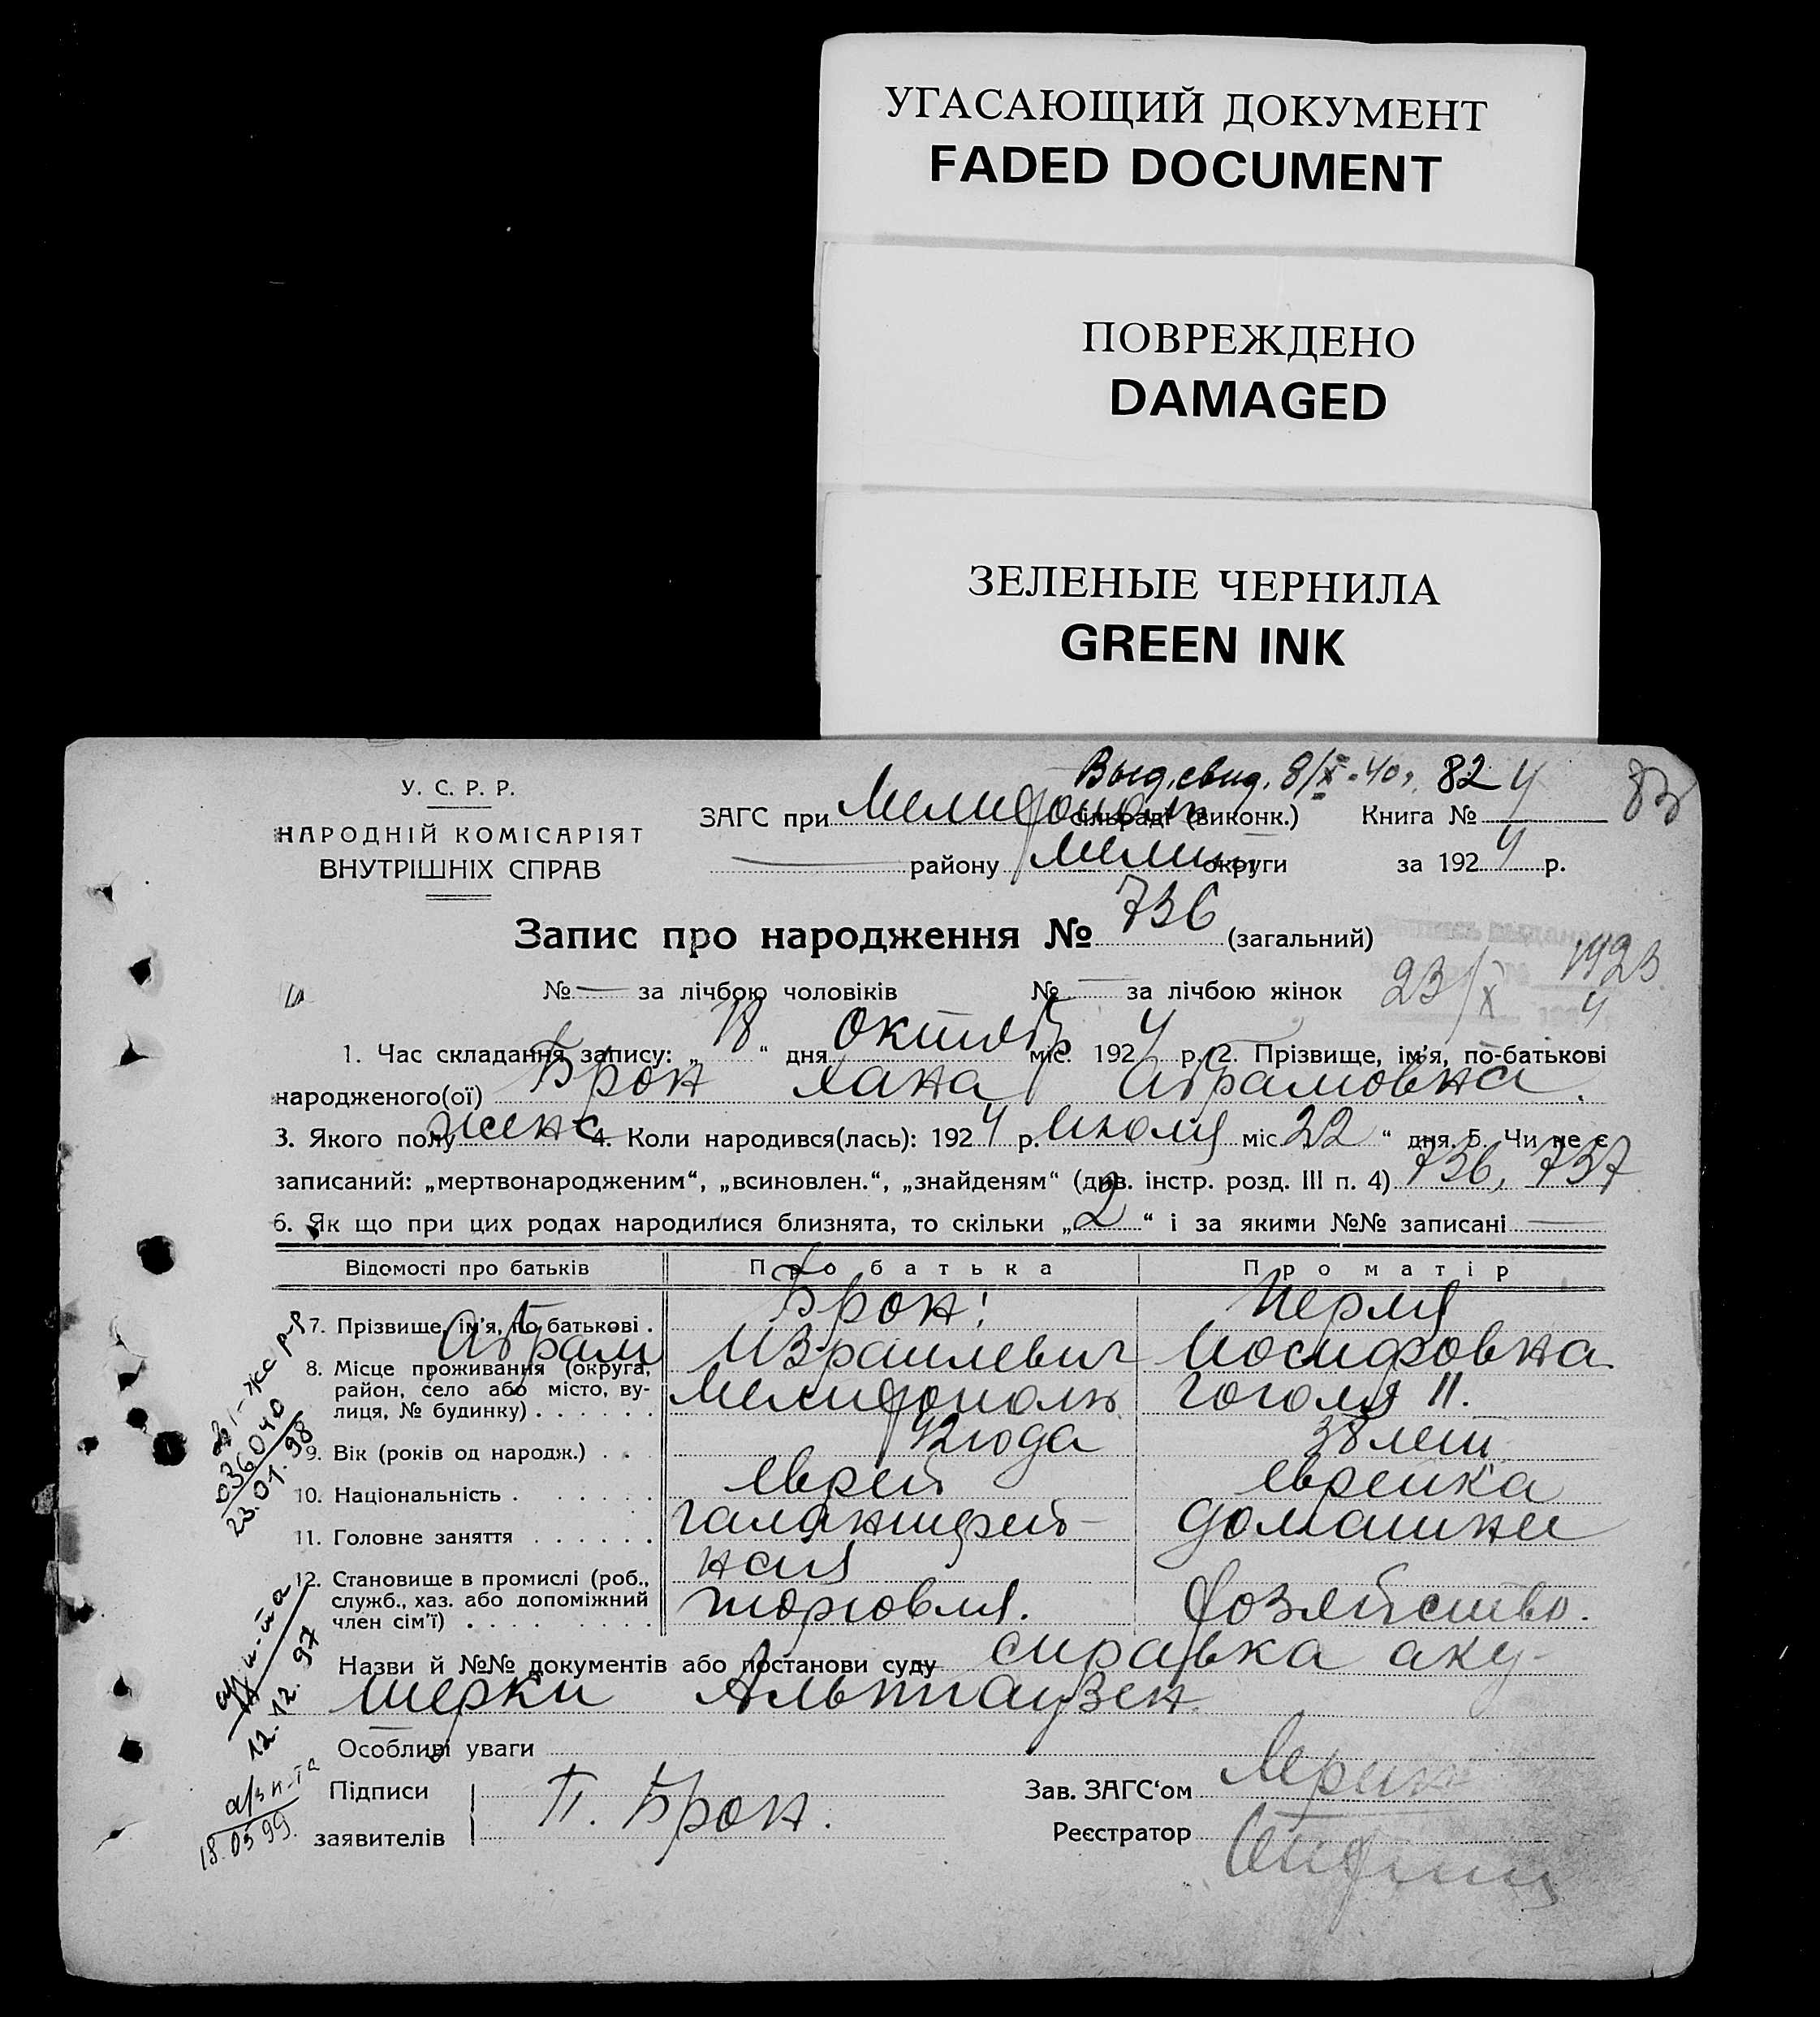 УГАСАЮЩИЙ ДОКУМЕНТ
FADED DOCUMENT
ПОВРЕЖДЕНО
DAMAGED
ЗЕЛЕНЫЕ ЧЕРНИЛА
GREEN INK
Выд. свид. 8/X-40г. 82 83
У. С. Р. Р.
НАРОДНІЙ КОМІСАРІЯТ
ВНУТРІШНІХ СПРАВ
ЗАГС при Мелитополь сільраді (виконк.) Книга № 4
району Мелит округи за 1924 р.
Запис про народження № 736 (загальний)
№ — за лічбою чоловіків № — за лічбою жінок 23/X 1923
4
1. Час складання запису: „18“ дня октяб міс. 1924 р. 2. Прізвище, ім’я, по-батькові
народженого(ої) Брон Хана Абрамовна.
3. Якого полу женс 4. Коли народився(лась): 1924 р. Июля міс 22 “ дня. 5. Чи не є
записаний: „мертвонародженим“, „всиновлен.“, „знайденям“ (див. інстр. розд. III п. 4) 736, 737
6. Як що при цих родах народилися близнята, то скільки „2“ і за якими №№ записані —
Відомості про батьків Про батька Про матір
7. Прізвище, ім’я, по батькові . Брон Перля
Абрам Израилевич Иосифовна
8. Місце проживання (округа,
район, село або місто, ву-
лиця, № будинку) . . . . . . Мелитополь Гоголя 11.
9. Вік (років од народж.) . . . 42 года 38 лет
10. Національність . . . . . . еврей еврейка
11. Головне заняття . . . . . . галантерей- домашнее
ная
12. Становище в промислі (роб.,
служб., хаз. або допоміжний
член сім’ї) . . . . . . . . . торговля. хозяйство.
Назви й №№ документів або постанови суду справка аку-
шерки Альтгаузен.
Особливі уваги
Підписи
заявителів П. Брон.
Зав. ЗАГС‘ом
Реєстратор
036040
23.01.98
12.12.97
18.03 99.